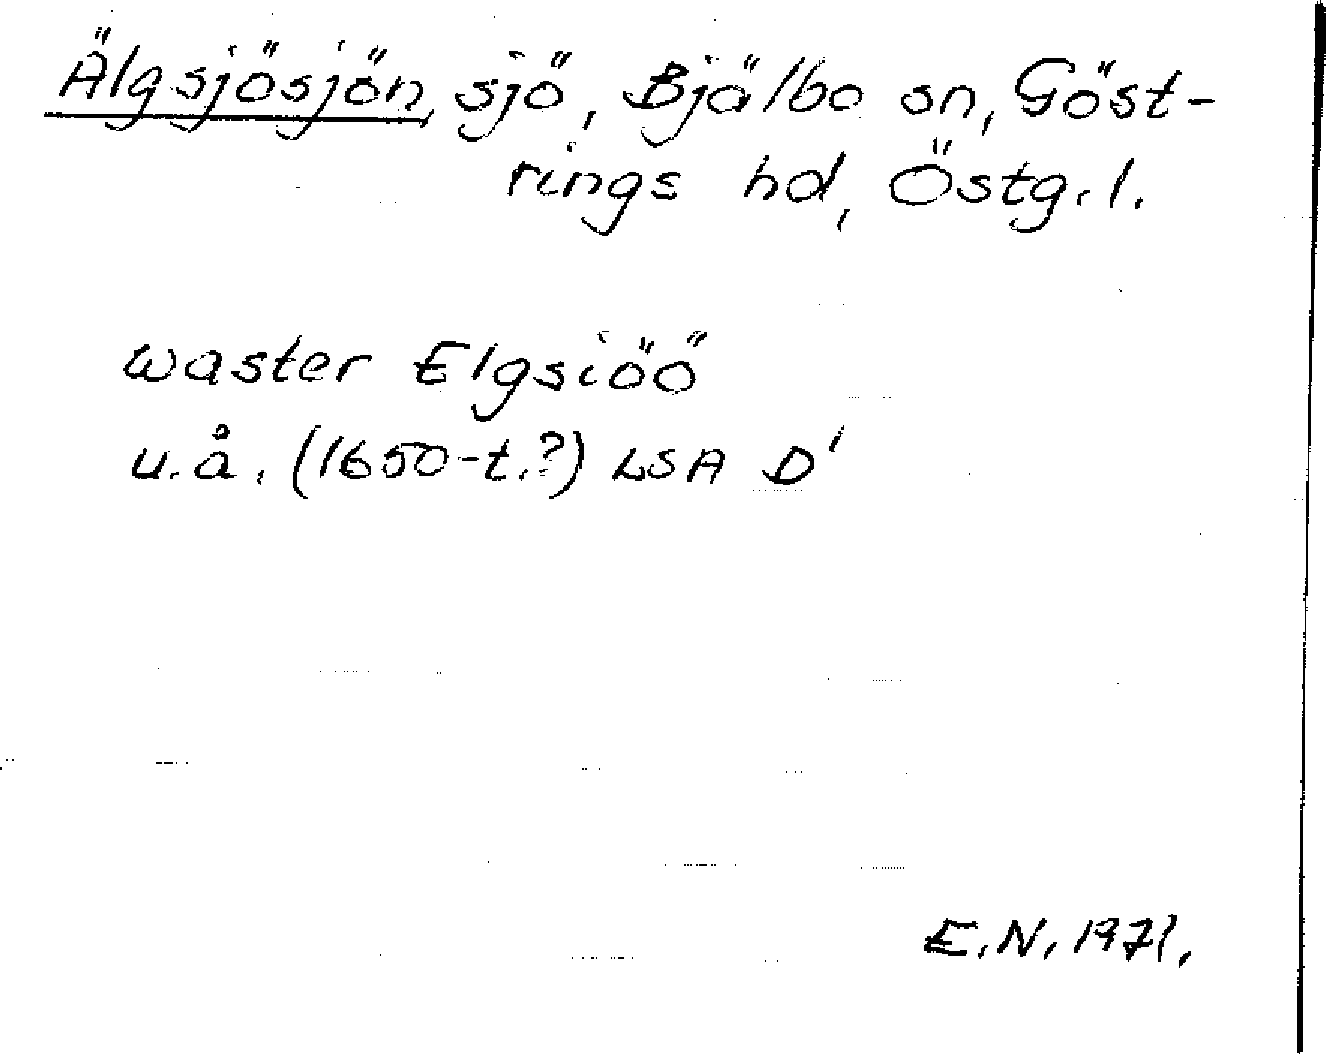 Älgsjösjön, sjö, Bjälbo sn, Göst-
rings hd, Östg. l.
waster Elgsiöö
u.å. (1650-t.?) LSA D¹
E.N. 1971.